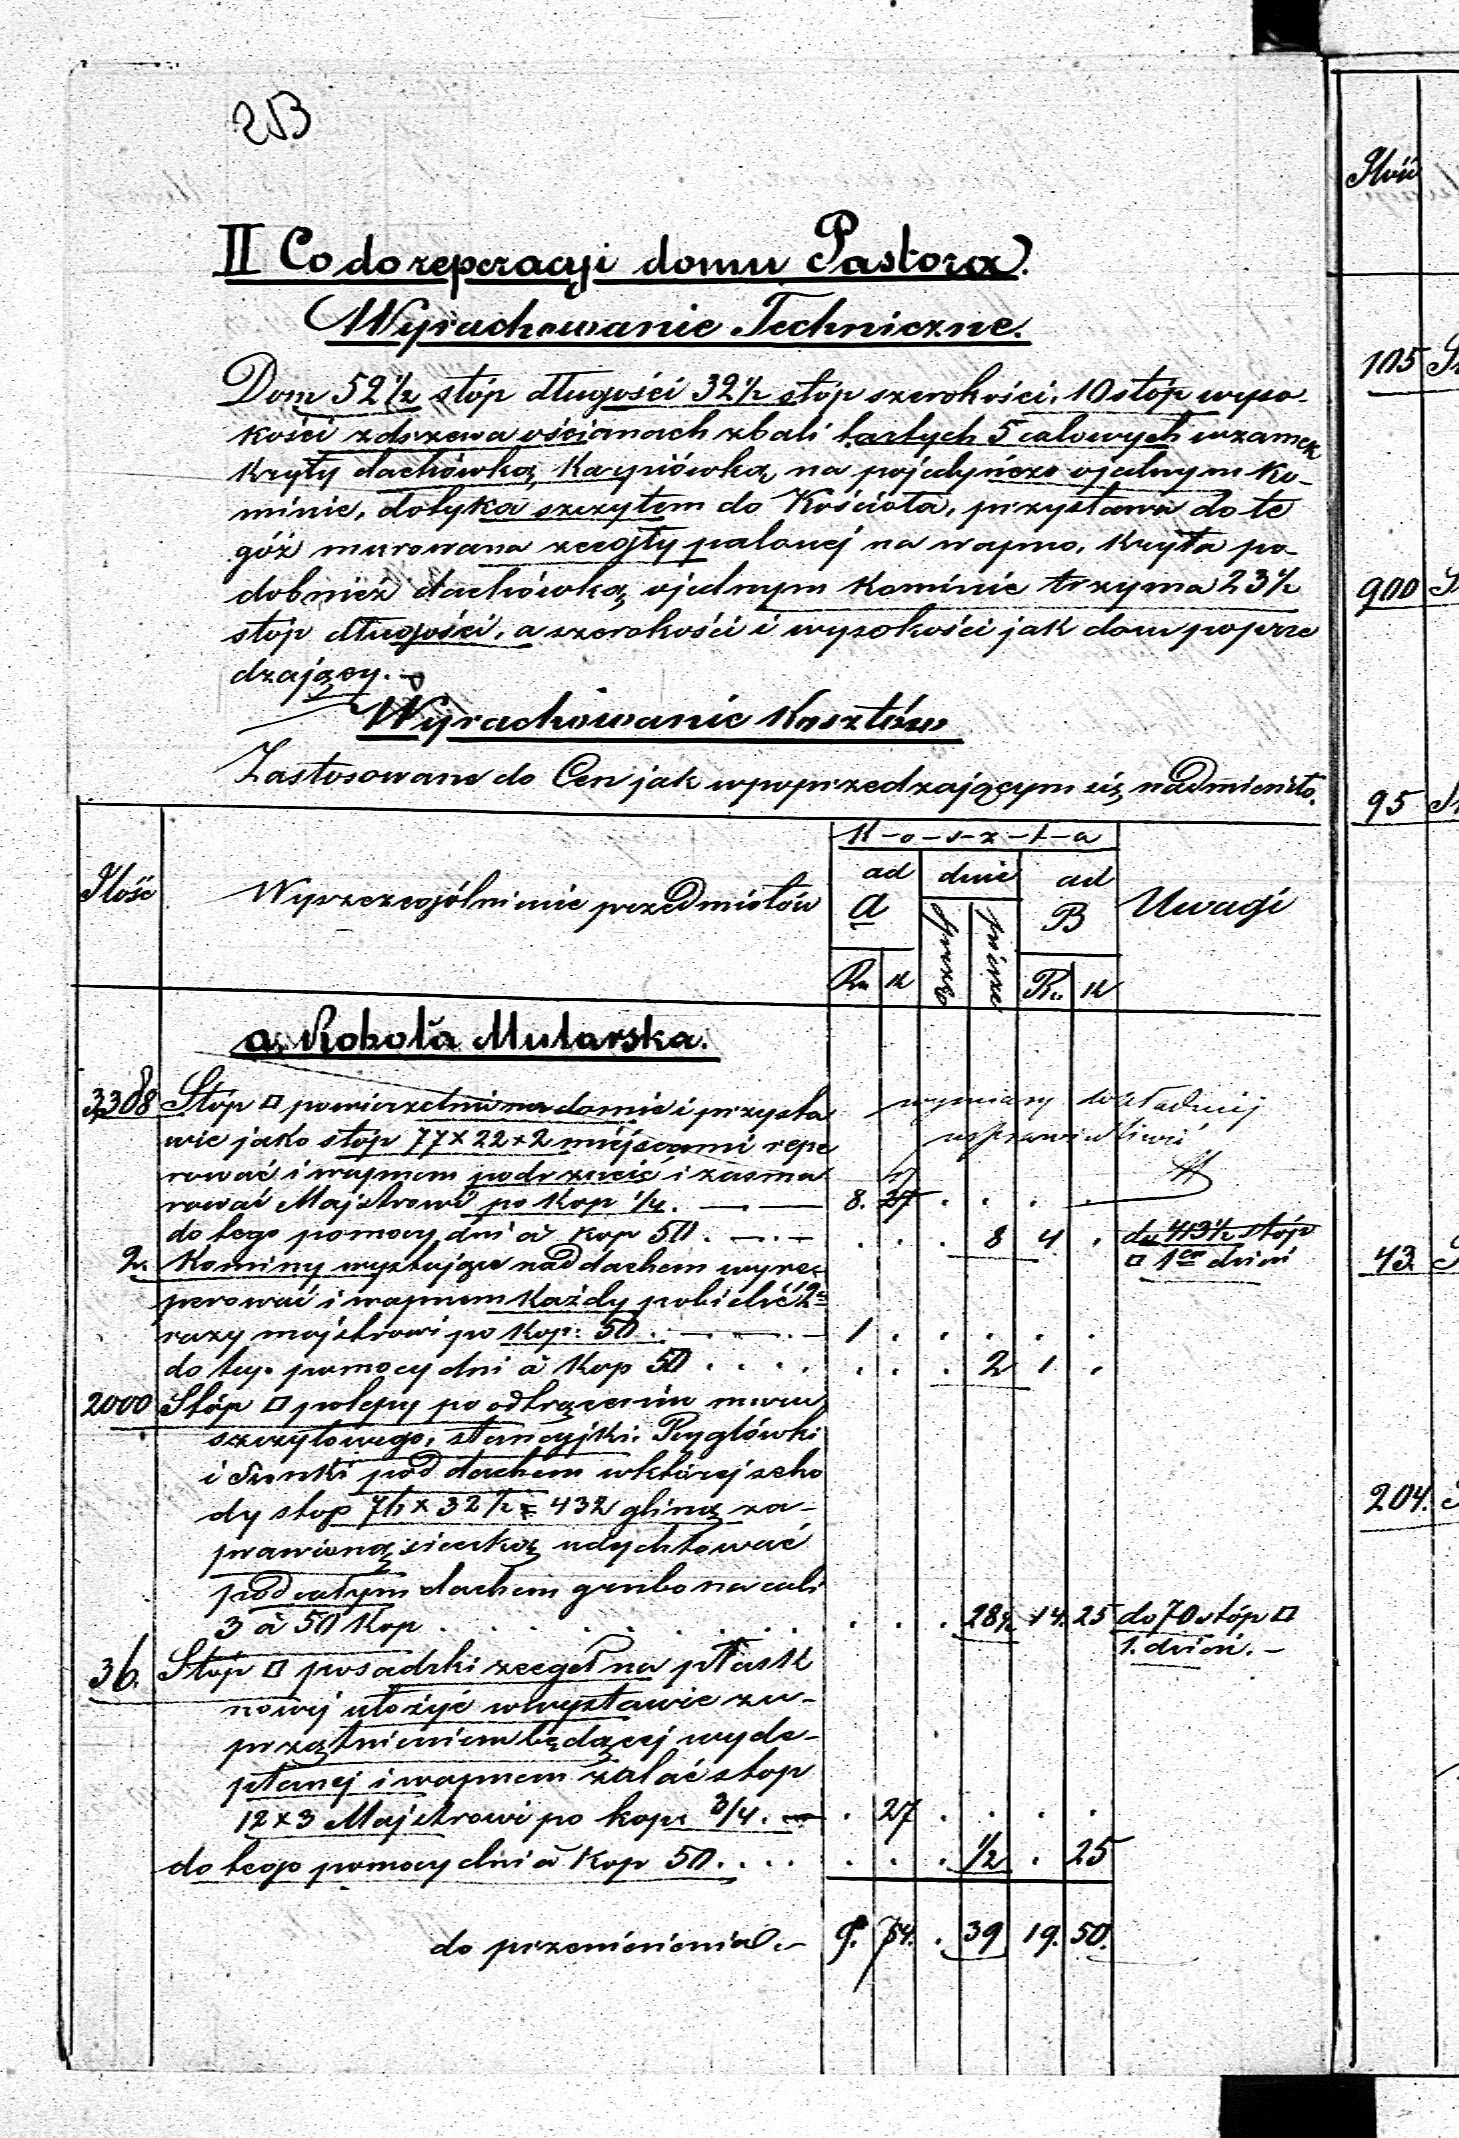 II Co do reperacyji domu Pastora.
Wyrachowanie Techniczne.
Dom 52½ stóp długości 32½ stóp szerokości, 10 stóp wyso-
kości z drzewa w ścianach z bali tartych 5 calowych w zamek
kryty dachówką, Karpiówką na pojedyńczo o jednym Ko-
minie, dotyka szczytem do Kościoła, przystawa do te
góż murowana z cegły palonej na wapno, kryta po-
dobnież dachówką, o jednym Kominie trzyma 23½
stóp długości, a szerokości i wysokości jak dom poprze
dzający.
Wyrachowanie Kosztów
Zastosowane do Cen jak w poprzedzającym się nadmieniło.
Ilość
Wyszczególnienie przedmiotów
K-o-s-z-t-a
ad A
dnie
ad B
Uwagi
Rs K
piesze
Rs K
a, Robota Mularska.
3388 Stóp □ powierzchni na domie i przysta
wie jako stóp 77 x 22 x 2 miejscami repe
rować i wapnem podrzucić i zasma
rować Majstrowi po Kop ¼. 8. 27
wymiary dokładniej
usprawiedliwić
do tego pomocy dni à Kop 50. 8 4 do 413½ stóp
□ 1en dzień
2. Kominy wystające nad dachem wyre-
perować i wapnem każdy pobielić 2a
razy majstrowi po Kop: 50. 1
do tego pomocy dni à Kop 50 2 1
2000 Stóp □ polepy po odtrąceniu muru
szczytowego, stancyjki, Pyglówki
i pod dachem w której scho
dy stop 7½ x 32½ = 432 gliną za-
prawioną sieczką udychtować
pod całym dachem grubo na cali
3 à 50 Kop 28½ 14. 25 do 70 stóp □
1. dzień. -
36. Stóp □ posadzki z cegeł na płask
nowej ułożyć w wystawie z u-
przątnieniem będącej wyde-
ptanej i wapnem zalać stop
12 x 3 Majstrowi po kop: 3/4. 27
do tego pomocy dni à Kop 50. ½ 25
do przeniesienia. 9. 54. 39 19. 50.
Ilość
105
900
95
43
204.